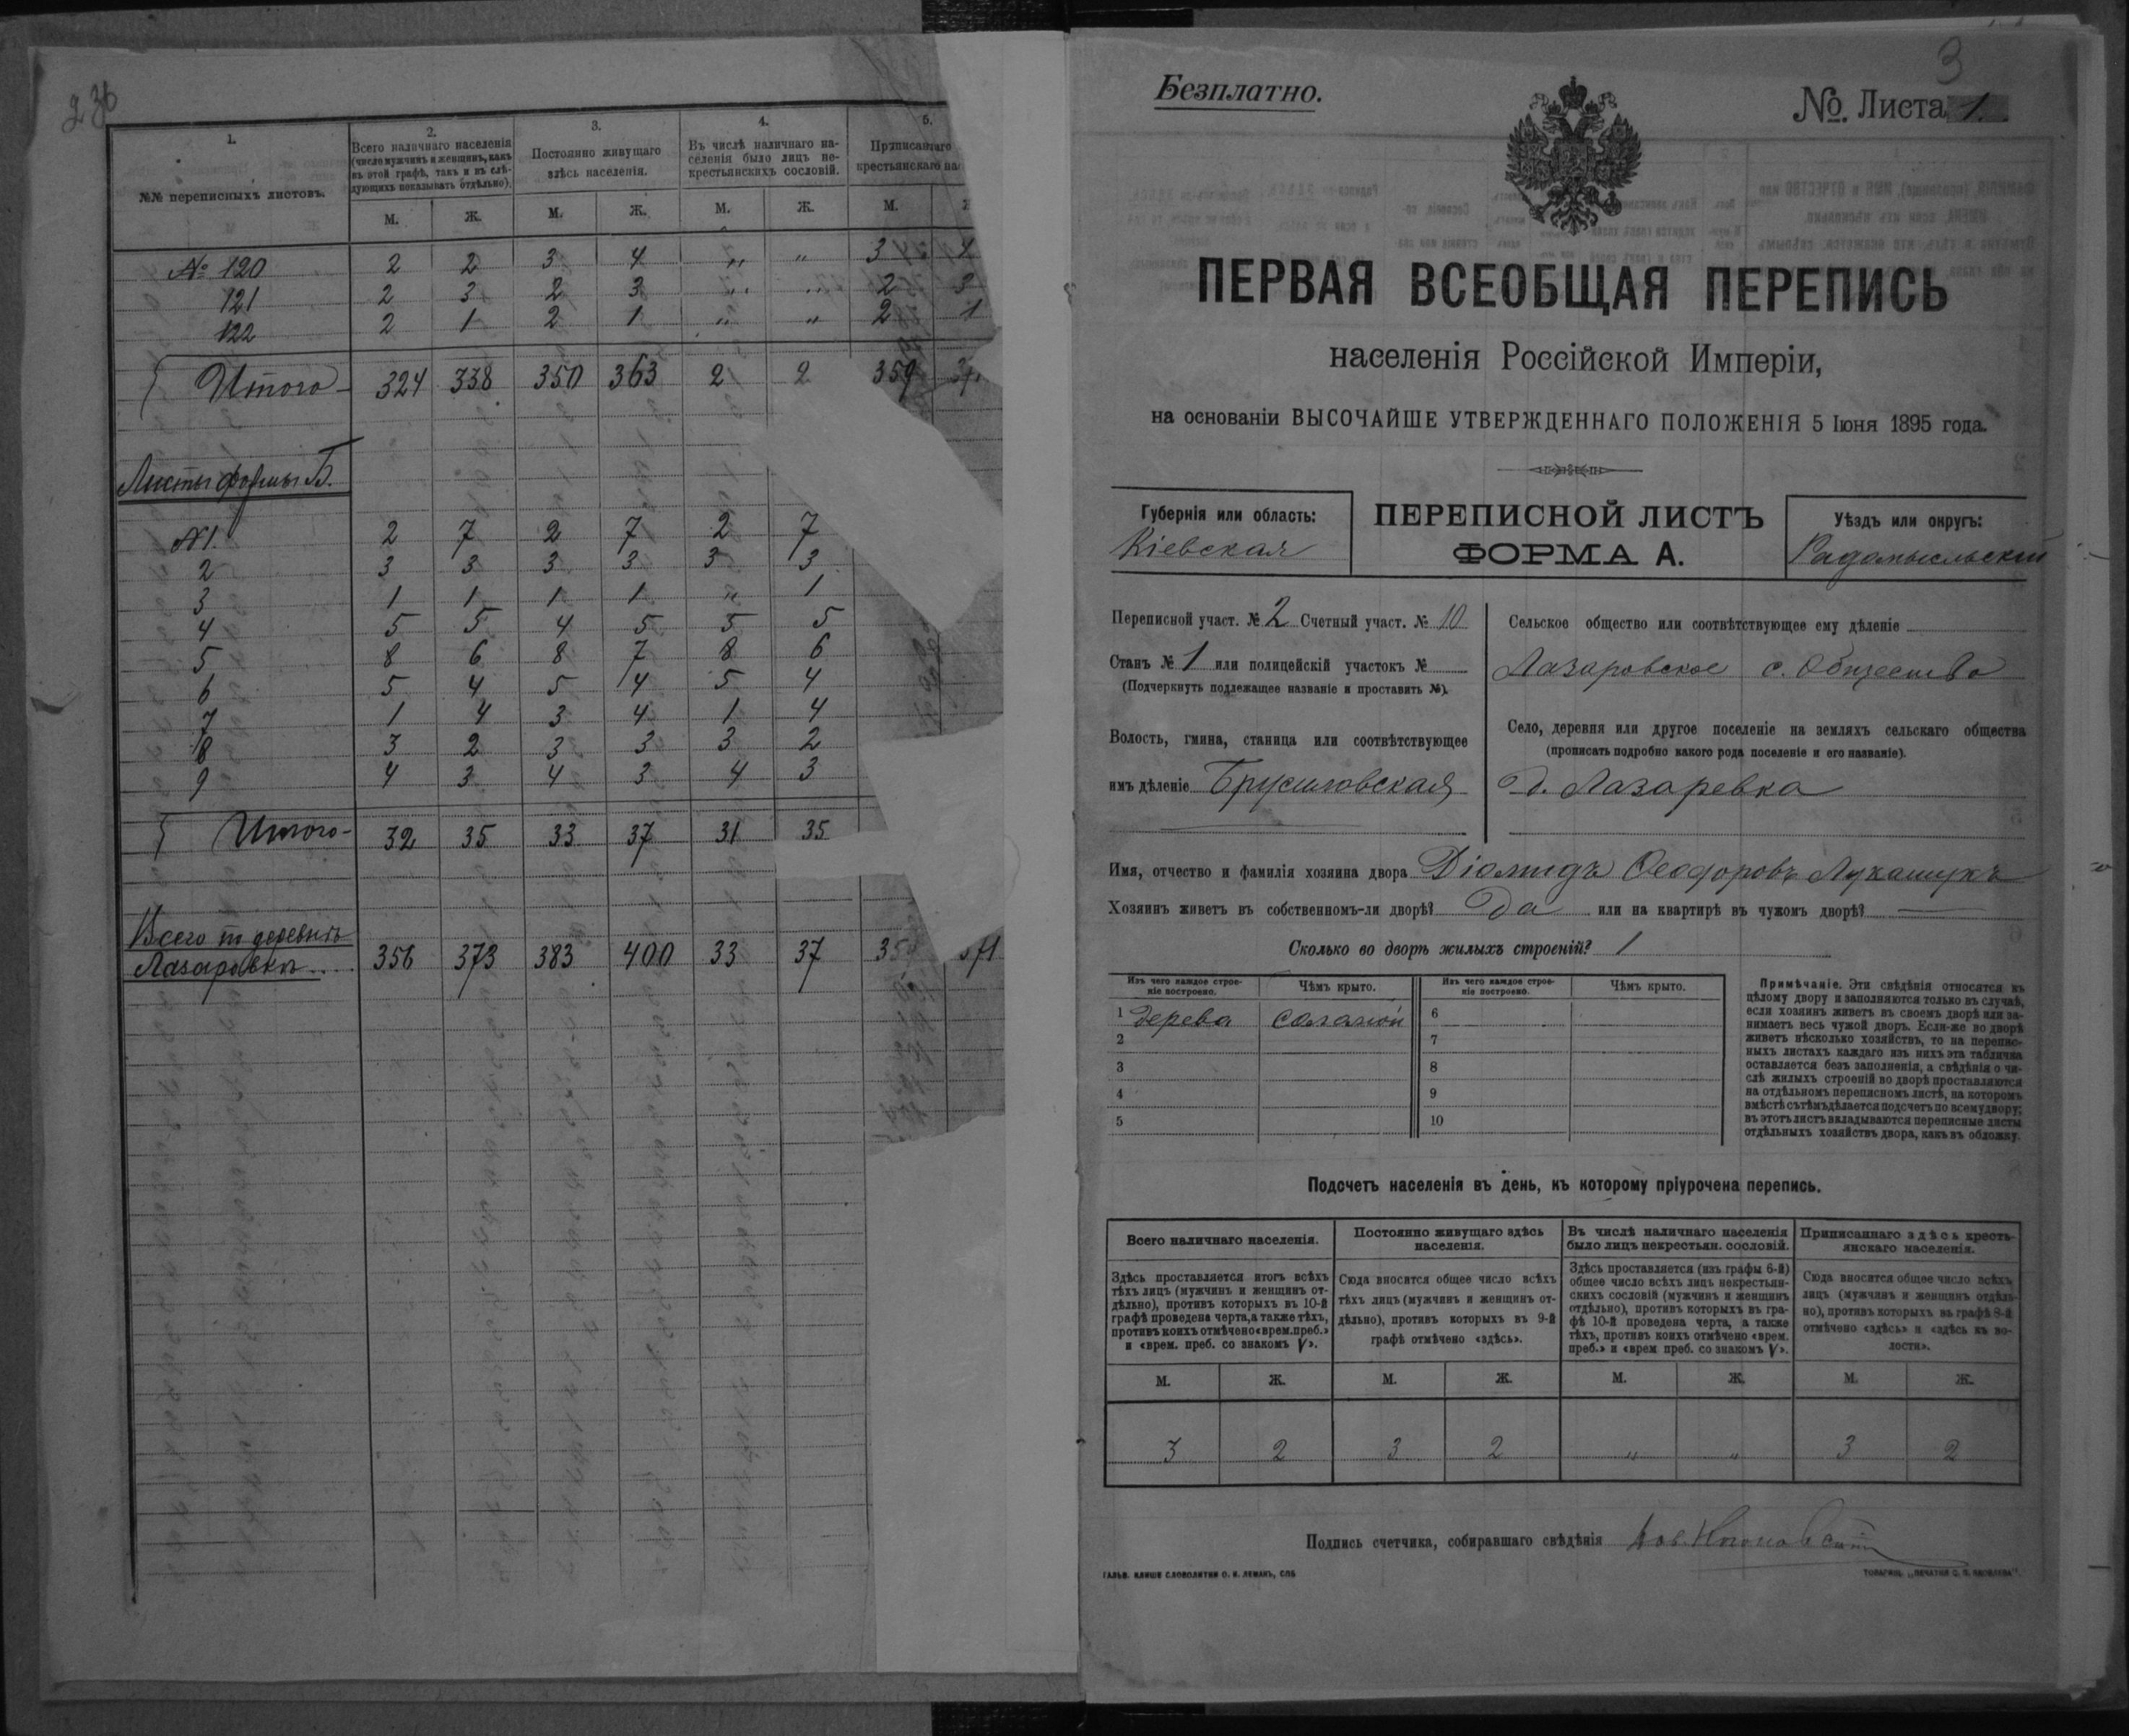 236
1.
2.
3.
4.
5.
№№ переписныхъ листовъ.
Всего наличнаго населенія
(число мужчинъ и женщинъ, какъ
въ этой графѣ, такъ и въ слѣ-
дующихъ показывать отдѣльно).
Постоянно живущаго
здѣсь населенія.
Въ числѣ наличнаго на-
селенія было лицъ не-
крестьянскихъ сословій.
Приписаннаго
крестьянскаго нас
М. Ж. М. Ж. М. Ж. М.
№ 120 2 2 3 4 „ „ 3 4
121 2 3 2 3 „ „ 2 3
122 2 1 2 1 „ „ 2 1
Итого 324 338 350 363 2 2 359
Листы формы Б.
№1. 2 7 2 7 2 7
2 3 3 3 3 3 3
3 1 1 1 1 „ 1
4 5 5 4 5 5 5
5 8 6 8 7 8 6
6 5 4 5 4 5 4
7 1 4 3 4 1 4
8 3 2 3 3 3 2
9 4 3 4 3 4 3
Итого 32 35 33 37 31 35
Всего въ деревнѣ
Лазаровка 356 373 383 400 33 37
3
Безплатно.
№. Листа 1.
ПЕРВАЯ ВСЕОБЩАЯ ПЕРЕПИСЬ
населенія Россійской Имперіи,
на основаніи ВЫСОЧАЙШЕ УТВЕРЖДЕННАГО ПОЛОЖЕНІЯ 5 Іюня 1895 года.
Губернія или область:
Кіевская
ПЕРЕПИСНОЙ ЛИСТЪ
ФОРМА А.
Уѣздъ или округъ:
Радомысльскій
Переписной участ. № 2 Счетный участ. № 10
Станъ № 1 или полицейскій участокъ №
(Подчеркнуть подлежащее названіе и проставить №).
Волость, гмина, станица или соотвѣтствующее
имъ дѣленіе Брусиловская
Сельское общество или соотвѣтствующее ему дѣленіе
Лазаровское с. Общество
Село, деревня или другое поселеніе на земляхъ сельскаго общества
(прописать подробно какого рода поселеніе и его названіе).
д. Лазаревка
Имя, отчество и фамилія хозяина двора Діомидъ Ѳеодоровъ Лукашукъ
Хозяинъ живетъ въ собственномъ-ли дворѣ? Да или на квартирѣ въ чужомъ дворѣ? —
Сколько во дворѣ жилыхъ строеній? 1
Изъ чего каждое строе-
ніе построено.
Чѣмъ крыто.
Изъ чего каждое строе-
ніе построено.
Чѣмъ крыто.
1 дерева соломой 6
2 7
3 8
4 9
5 10
Примѣчаніе. Эти свѣдѣнія относятся къ
цѣлому двору и заполняются только въ случаѣ,
если хозяинъ живетъ въ своемъ дворѣ или за-
нимаетъ весь чужой дворъ. Если-же во дворѣ
живетъ нѣсколько хозяйствъ, то на перепис-
ныхъ листахъ каждаго изъ нихъ эта табличка
оставляется безъ заполненія, а свѣдѣнія о чи-
слѣ жилыхъ строеній во дворѣ проставляются
на отдѣльномъ переписномъ листѣ, на которомъ
вмѣстѣ съ тѣмъ дѣлается подсчетъ по всему двору;
въ этотъ листъ вкладываются переписные листы
отдѣльныхъ хозяйствъ двора, какъ въ обложку.
Подсчетъ населенія въ день, къ которому пріурочена перепись.
Всего наличнаго населенія.
Постоянно живущаго здѣсь
населенія.
Въ числѣ наличнаго населенія
было лицъ некрестьян. сословій.
Приписаннаго здѣсь кресть-
янскаго населенія.
Здѣсь проставляется итогъ всѣхъ
тѣхъ лицъ (мужчинъ и женщинъ от-
дѣльно), противъ которыхъ въ 10-й
графѣ проведена черта, а также тѣхъ,
противъ коихъ отмѣчено «врем. преб.»
и «врем. преб. со знакомъ V».
Сюда вносится общее число всѣхъ
тѣхъ лицъ (мужчинъ и женщинъ от-
дѣльно), противъ которыхъ въ 9-й
графѣ отмѣчено «здѣсь».
Здѣсь проставляется (изъ графы 6-й)
общее число всѣхъ лицъ некрестьян-
скихъ сословій (мужчинъ и женщинъ
отдѣльно), противъ которыхъ въ гра-
фѣ 10-й проведена черта, а также
тѣхъ, противъ коихъ отмѣчено «врем.
преб.» и «врем преб. со знакомъ V».
Сюда вносится общее число всѣхъ
лицъ (мужчинъ и женщинъ отдѣль-
но), противъ которыхъ въ графѣ 8-й
отмѣчено «здѣсь» и «здѣсь къ во-
лости».
М. Ж. М. Ж. М. Ж. М. Ж.
3 2 3 2 „ „ 3 2
Подпись счетчика, собиравшаго свѣдѣнія
ГАЛЬВ. КЛИШЕ СЛОВОЛИТНИ О. И. ЛЕМАНЪ, СПБ
ТОВАРИЩ. „ПЕЧАТНЯ С. П. ЯКОВЛЕВА“.